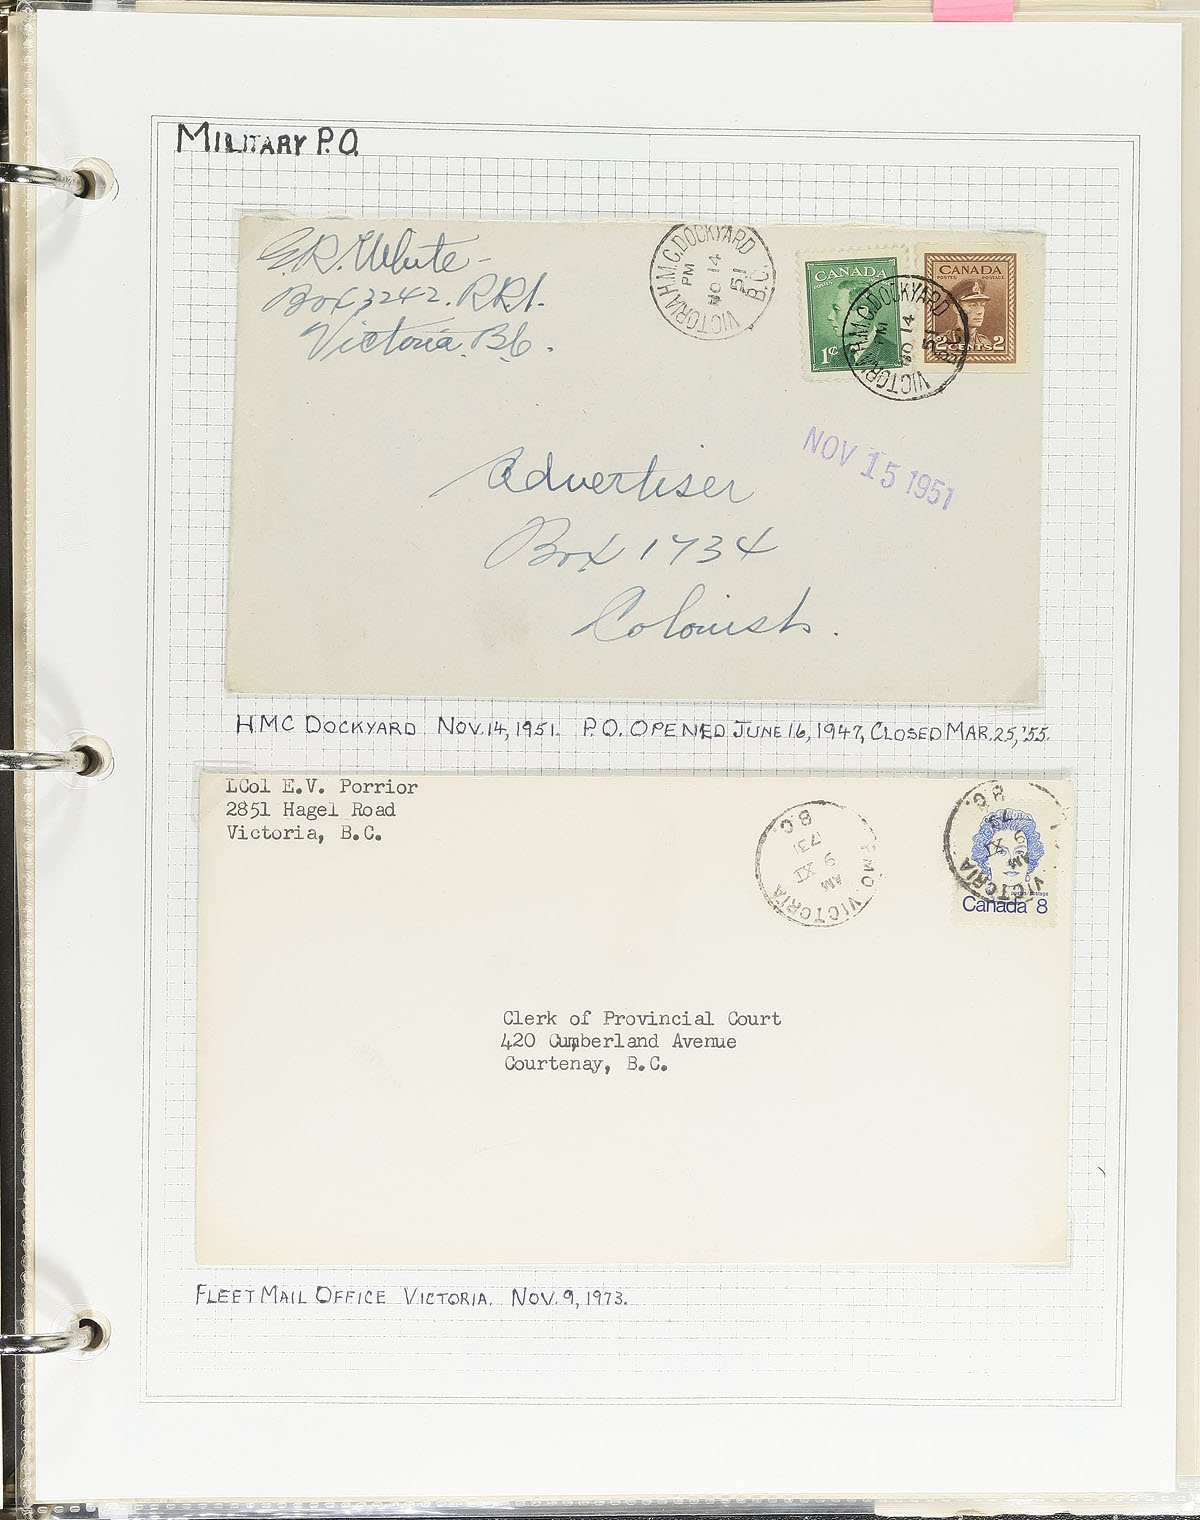 MILITARY P.O.
G.R. White -
Box 3242. RR1.
Victoria. B.C.
VICTORIA H.M.C. DOCKYARD
PM
NO 14
51
B.C.
CANADA
POSTES POSTAGE
1¢
CANADA
POSTES POSTAGE
2 CENTS 2
VICTORIA H.M.C. DOCKYARD
PM
NO 14
51
B.C.
NOV 15 1951
Advertiser
Box 1734
Colonist.
HMC DOCKYARD NOV. 14, 1951. P.O. OPENED JUNE 16, 1947, CLOSED MAR. 25, '55.
LCol E.V. Porrior
2851 Hagel Road
Victoria, B.C.
FMO VICTORIA
AM
9 XI
73
B.C.
VICTORIA
AM
9 XI
73
B.C.
postes/postage
Canada 8
Clerk of Provincial Court
420 Cumberland Avenue
Courtenay, B.C.
FLEET MAIL OFFICE VICTORIA. NOV. 9, 1973.